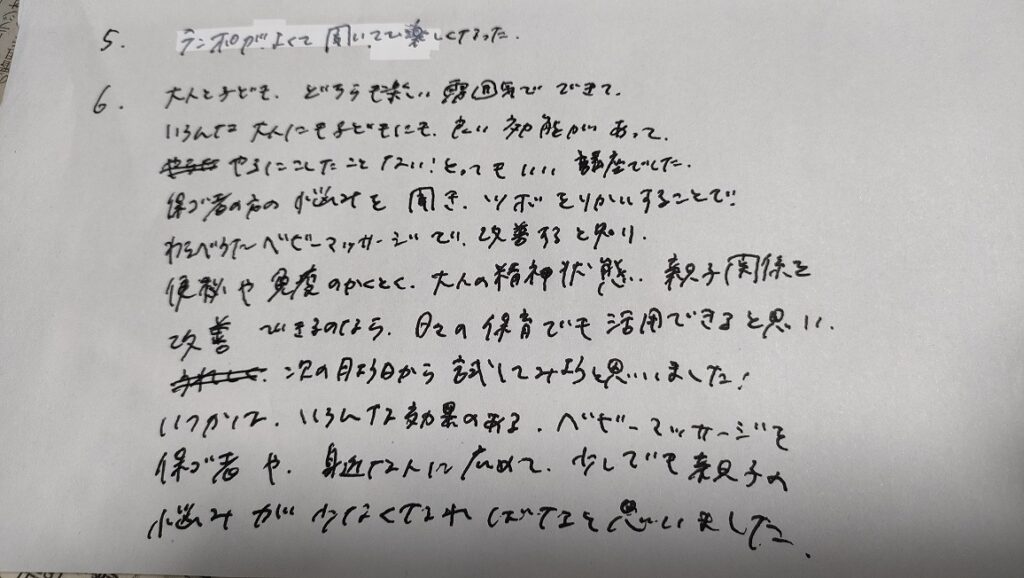 5. テンポがよくて聞いてて楽しくなった。
6. 大人と子ども、どちらも楽しい雰囲気でできて、
いろんな大人にも子どもにも、良い効能があって、
やるにこしたことない!とってもいい講座でした。
保ゴ者の方の悩みを聞き、ツボをりかいすることで
わらべうたベビーマッサージで、改善すると知り、
便秘や免疫のかくとく、大人の精神状態、親子関係を
改善できるのなら、日々の保育でも活用できると思い、
次の月よう日から試してみようと思いました!
いつかは、いろんな効果のある、ベビーマッサージを
保ゴ者や、身近な人に広めて、少しでも親子の
悩みが少なくなればなと思いました。